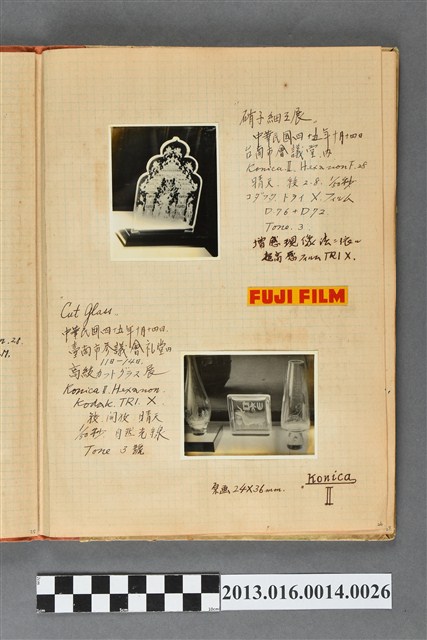 硝子細工展.
中華民國四十五年十月十四日
台南市會議堂.内
Konica II. Hexanon F.28
晴天.
コダック. トライ X. フィルム
D76 + D72
Tone. 3
増感現像法
超高感フィルム TRI X.
FUJI FILM
Cut Glass.
中華民國四十五年十月十四日.
臺南市參議會礼堂内
11日-14日.
高級カットグラス展
Konica II. Hexanon.
Kodak. TRI. X.
晴天
自然光線
Tone 3 號
24×36mm.
Konica
II
2013.016.0014.0026